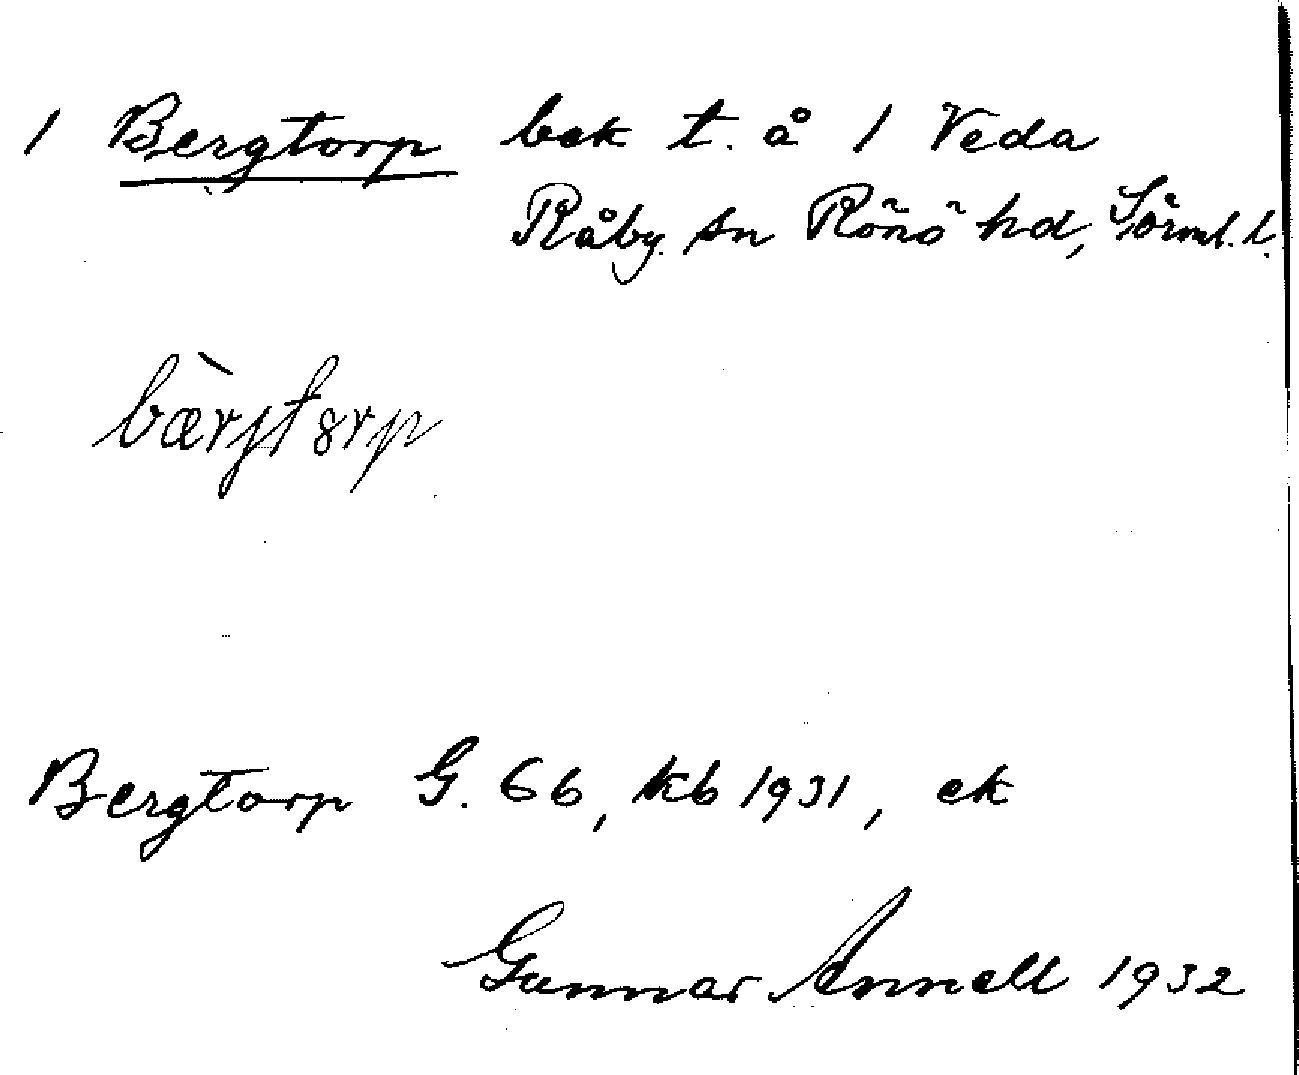 1 Bergtorp bek t. å 1 Veda
Råby sn Rönö hd, Sörml. l.
bærjtorp
Bergtorp G. 66, kb 1931, ek
Gunnar Annell 1932